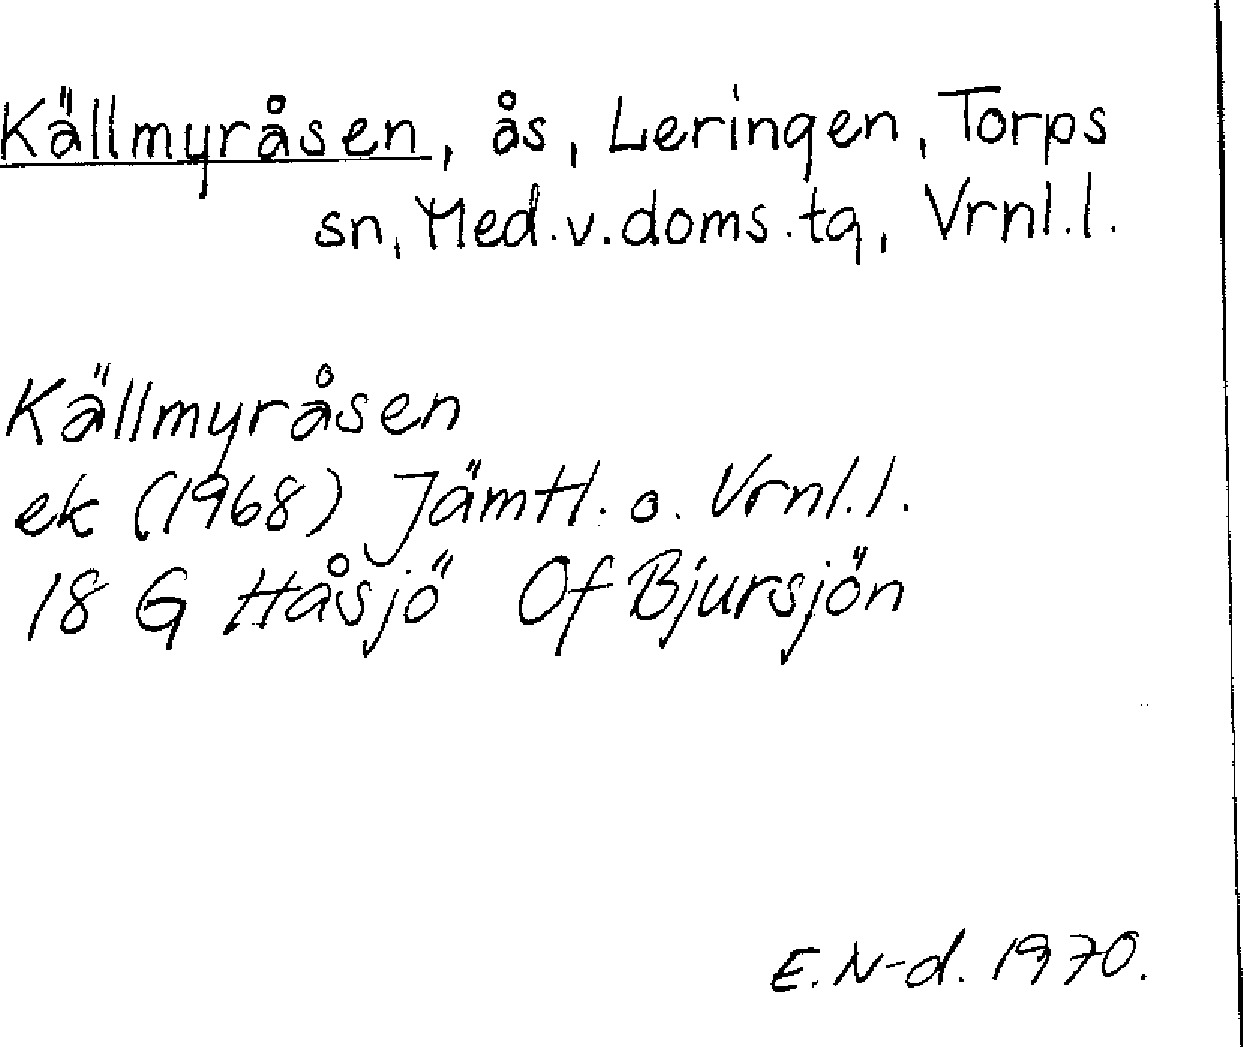 Källmyråsen, ås, Leringen, Torps
sn, Med.v.doms.tg, Vrnl.l.
Källmyråsen
ek (1968) Jämtl. o. Vrnl.l.
18 G Håsjö Of Bjursjön
E.N-d. 1970.